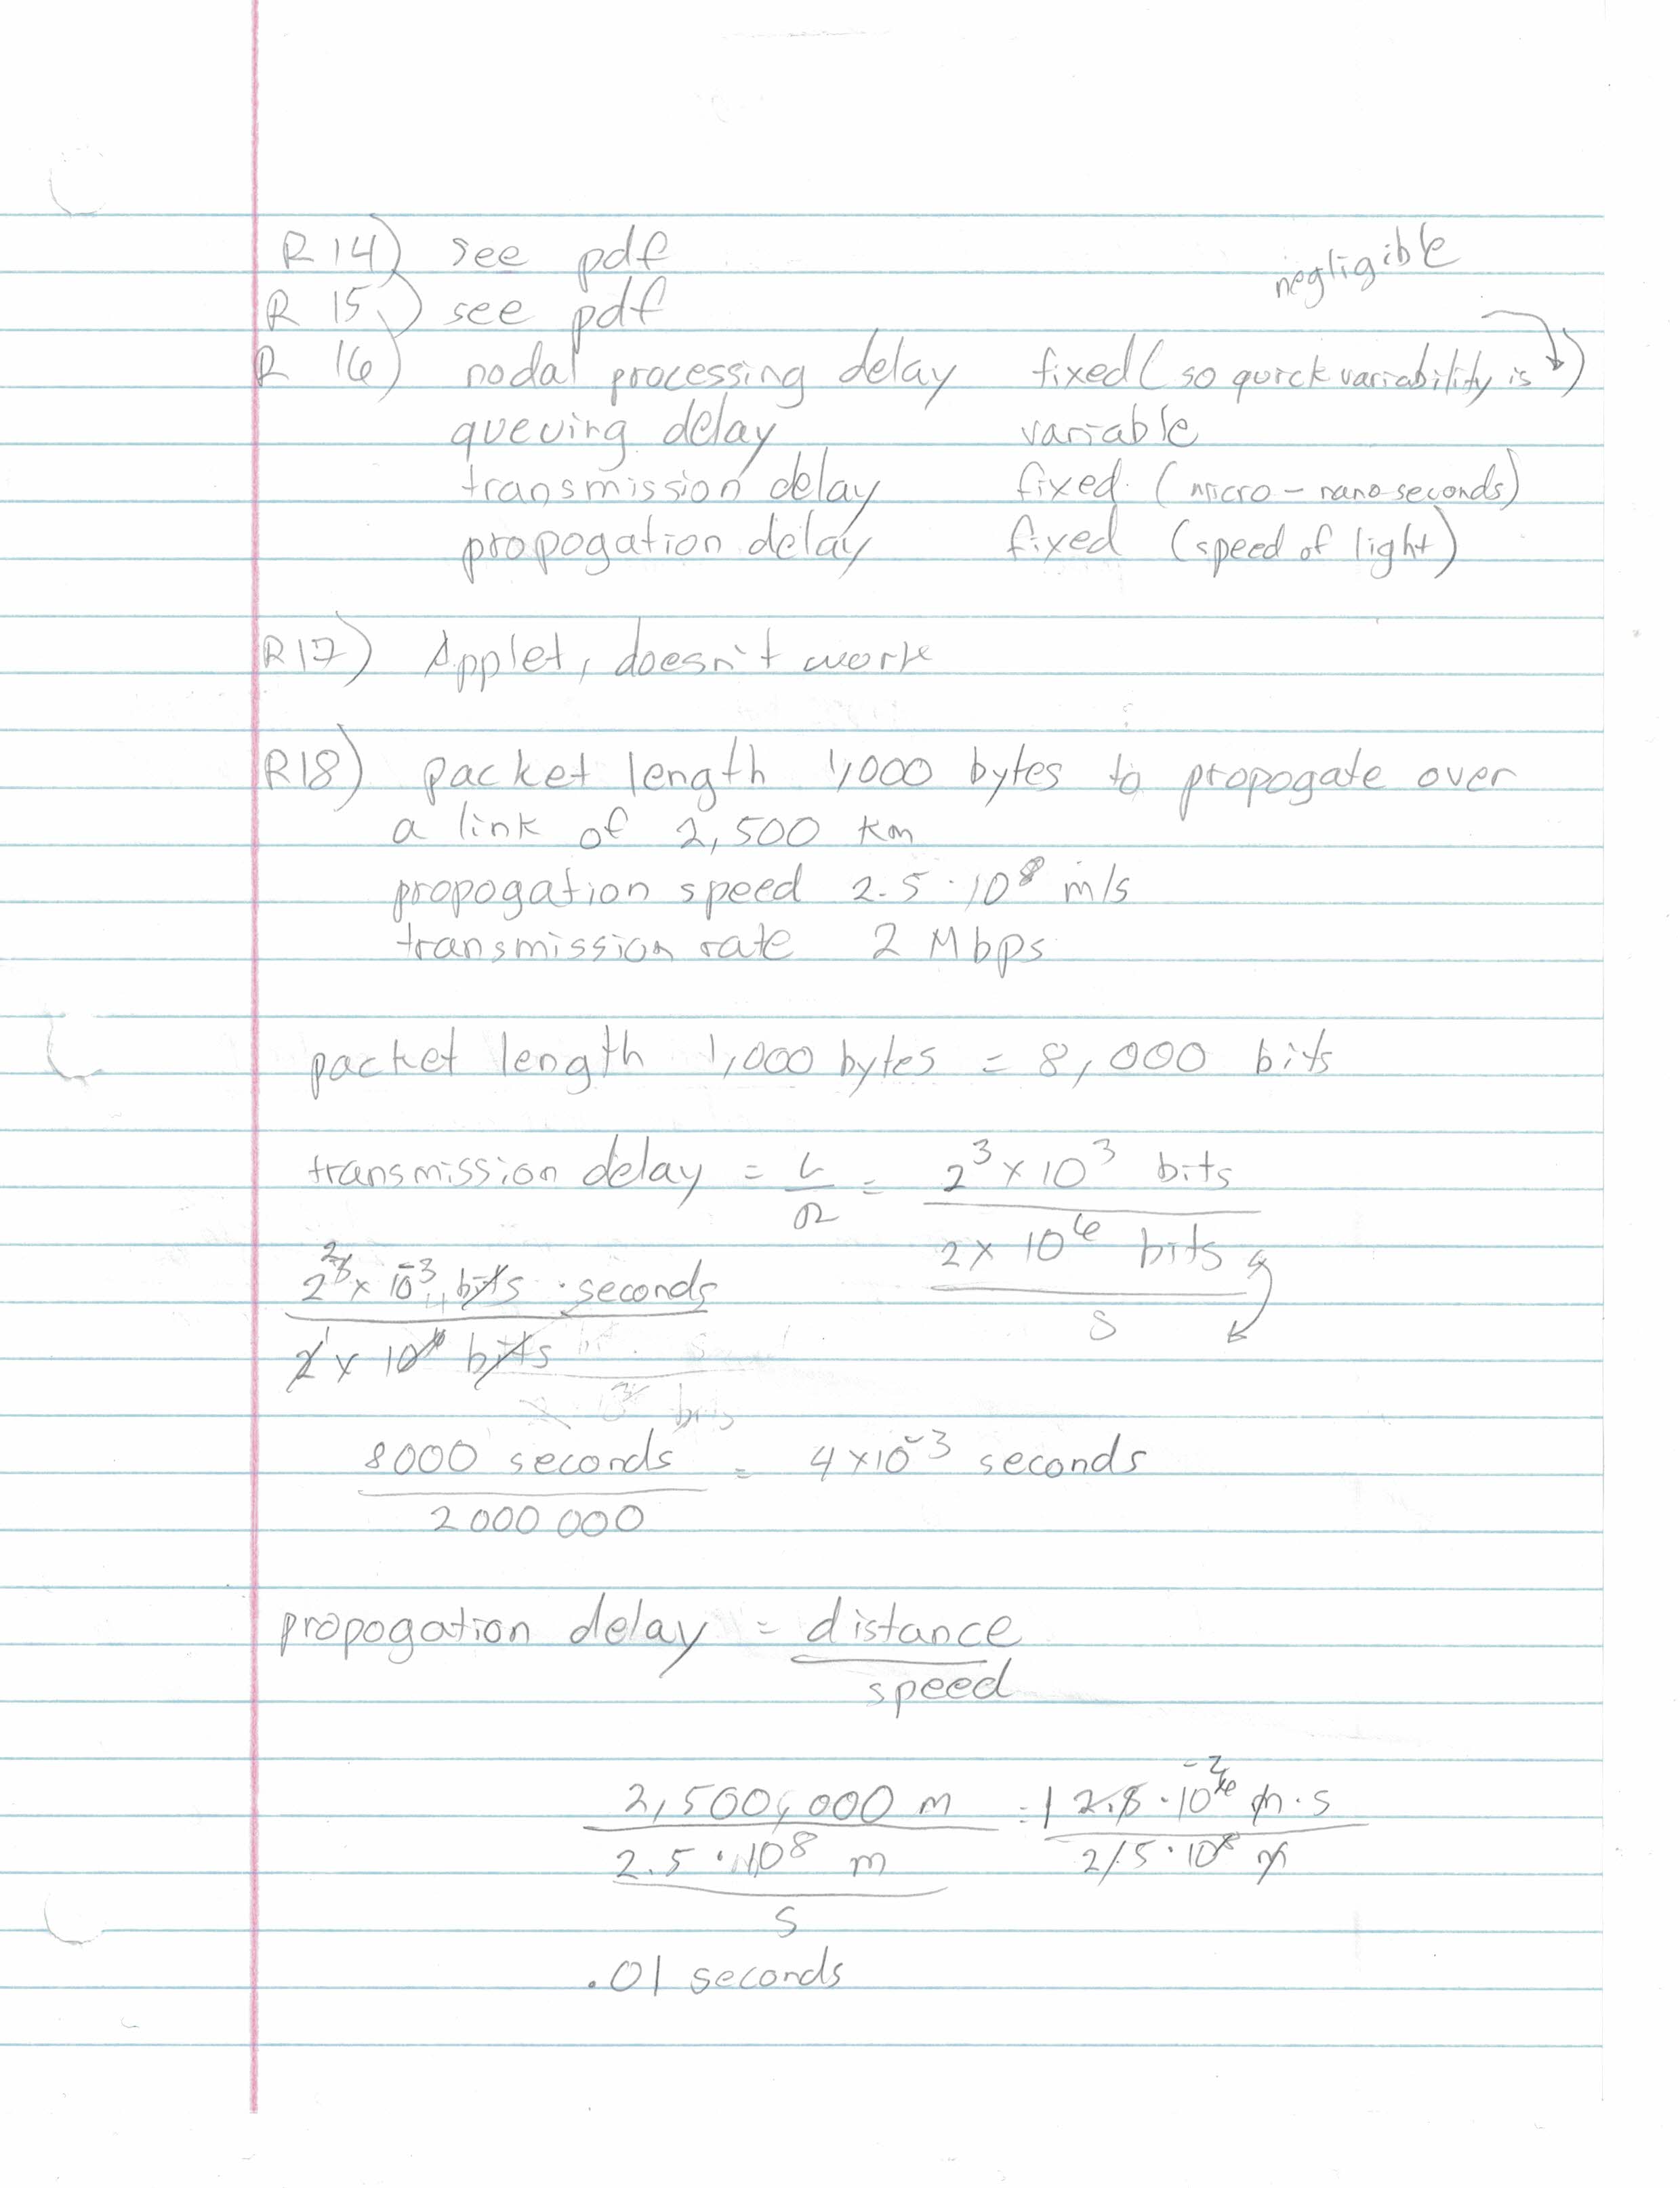 R 14) see pdf
negligible
R 15) see pdf
R 16) nodal processing delay fixed (so quick variability is )
queuing delay variable
transmission delay fixed. (micro - nano seconds)
propogation delay fixed (speed of light)
R17) Applet, doesn't work
R18) packet length 1,000 bytes to propogate over
a link of 2,500 km
propogation speed 2.5 · 10⁸ m/s
transmission rate 2 Mbps
packet length 1,000 bytes = 8,000 bits
transmission delay = L/R = 2³ x 10³ bits
2 x 10⁶ bits
s
2² x 10⁻³ bits · seconds
2 x 10 bits
8000 seconds = 4 x 10⁻³ seconds
2000 000
propogation delay = distance
speed
2,500,000 m = 1 2.5 · 10⁻² m · s
2.5 · 10⁸ m 2.5 · 10⁸ m
s
.01 seconds